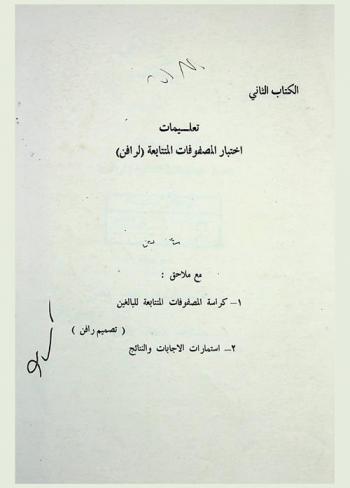 الكتاب الثاني
تعلـــيمات
اختبار المصفوفات المتتابعة (لرافن)
مع ملاحق :
١ــ كراسة المصفوفات المتتابعة للبالغين
( تصميم رافن )
٢ــ استمارات الاجابات والنتائج